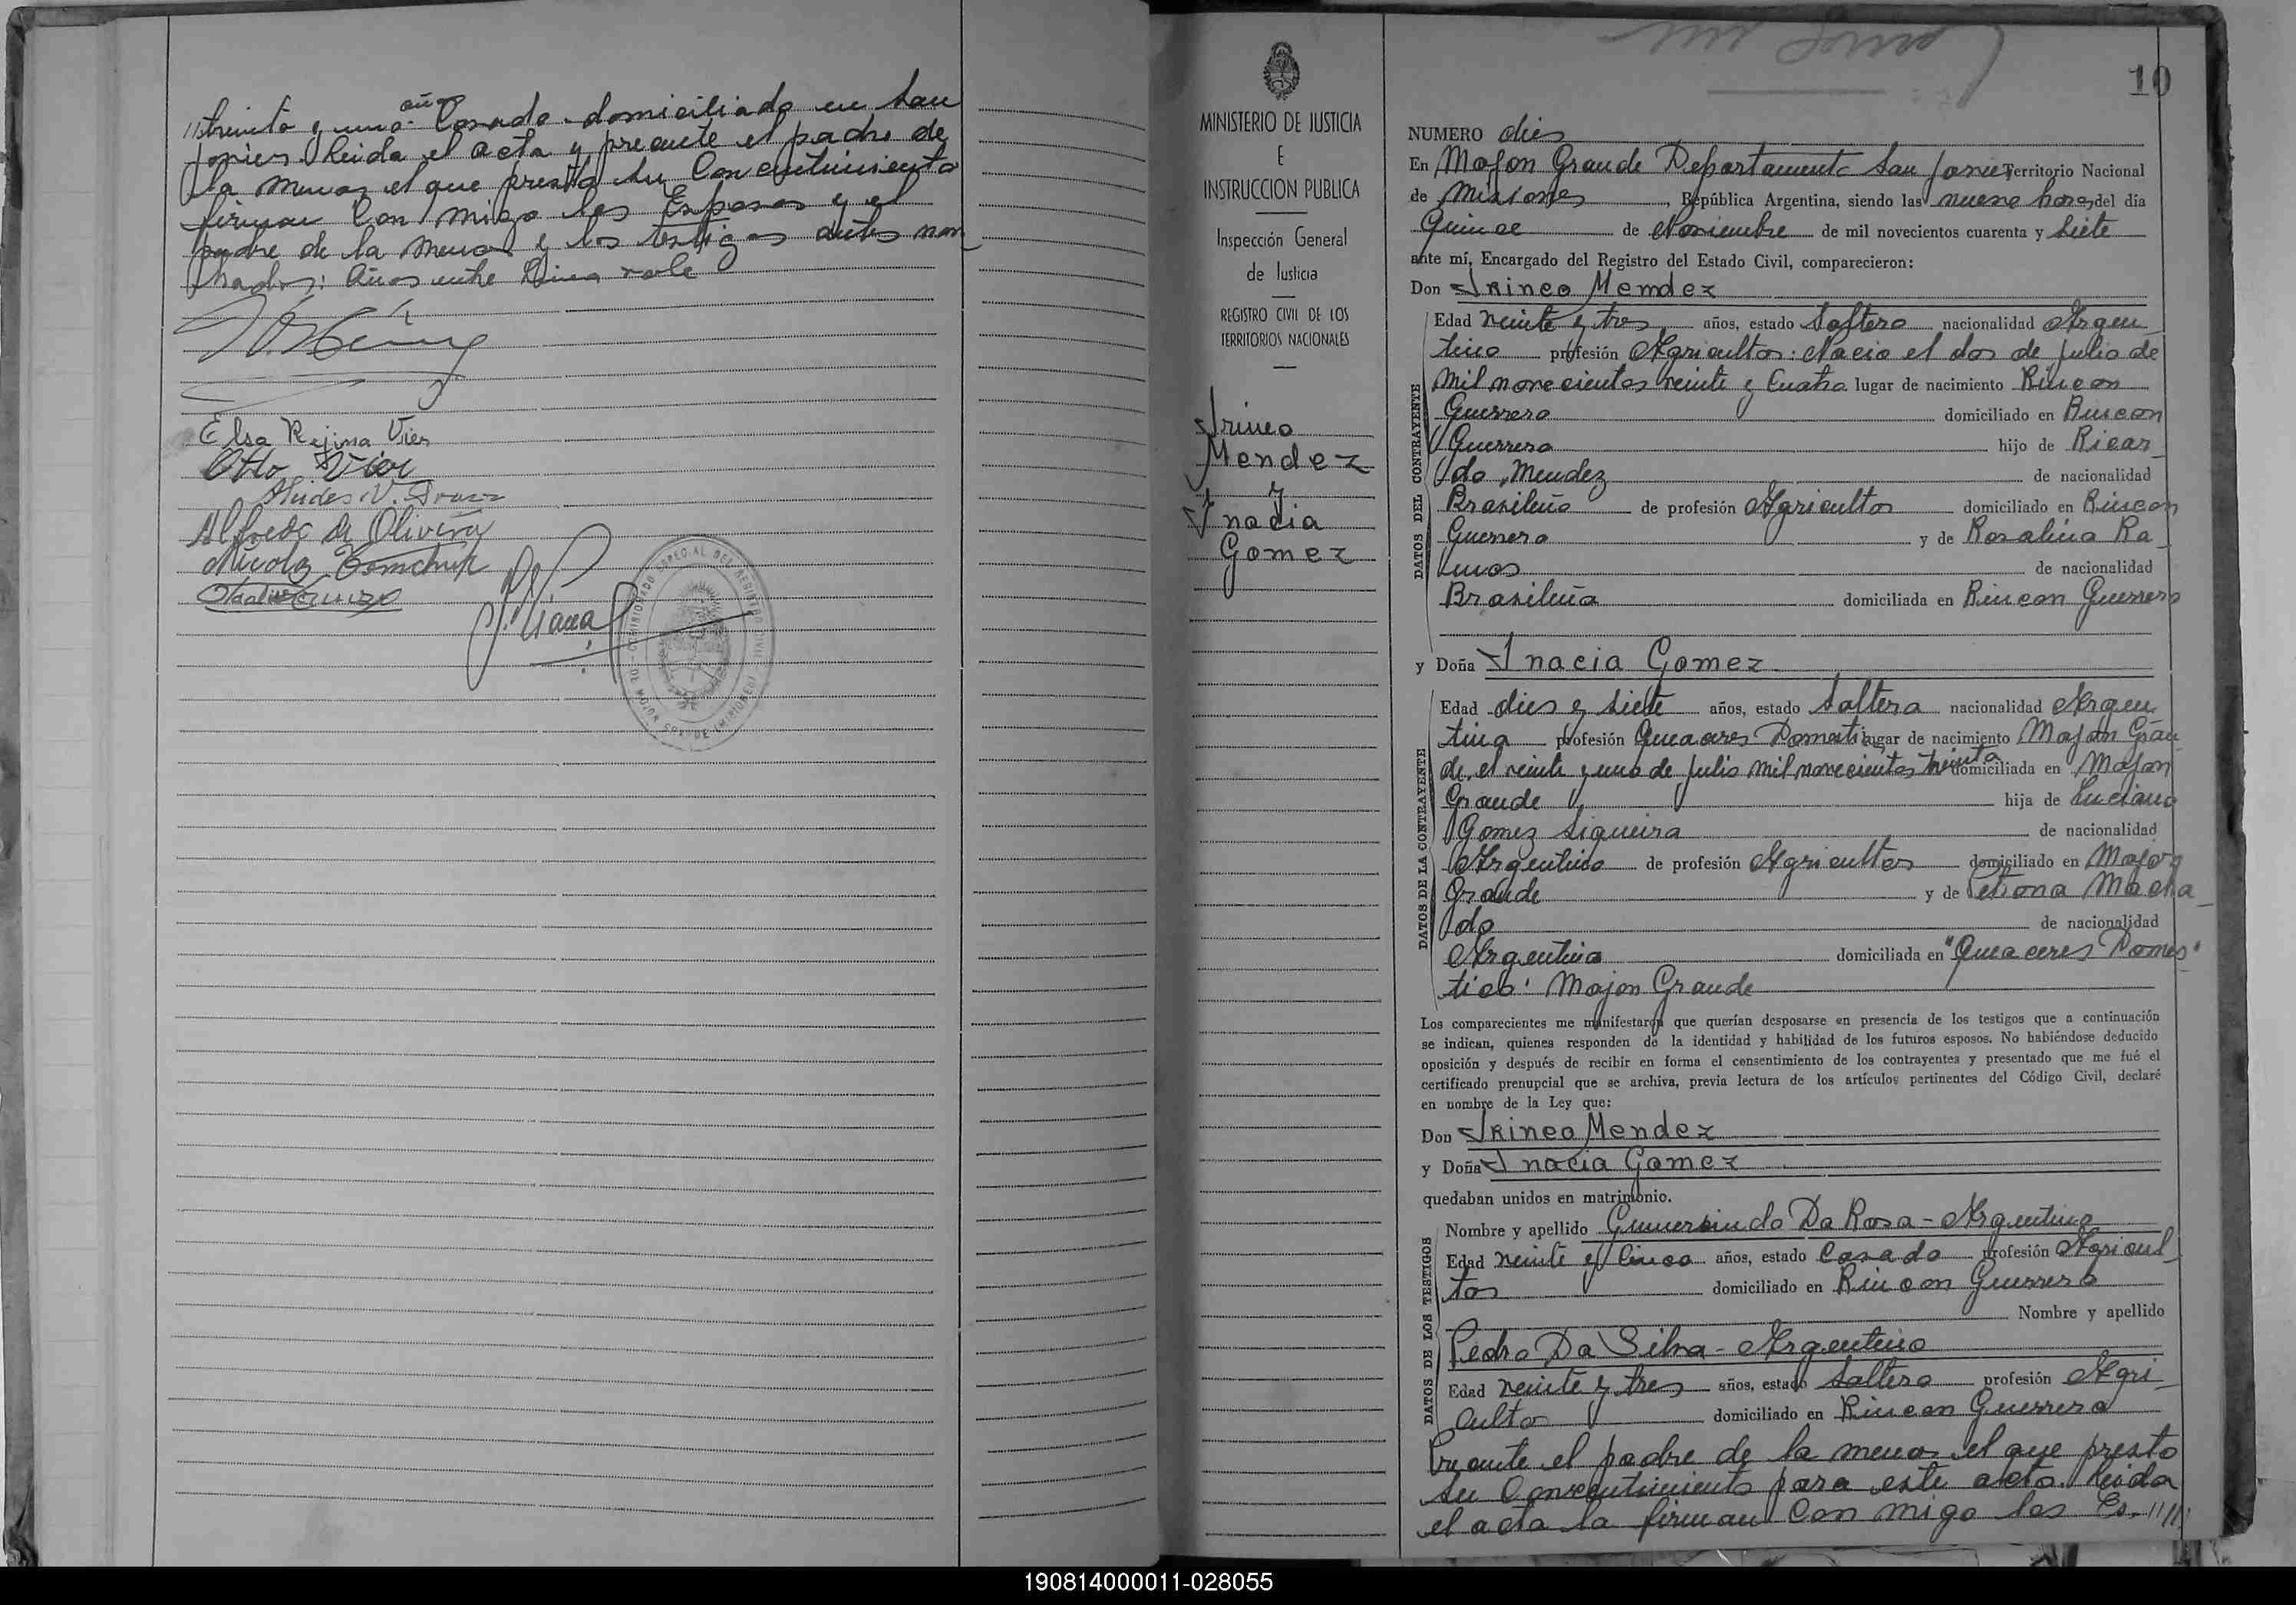 //treinta y uno años Casado domiciliado en San
Javier. Leida el acta y precente el padre de
la menor el que presta su Concentimiento
firman Con migo los Esposos y el
padre de la menor y los testigos antes nom
brados: Años entre linea vale
Elsa Rejina Vier
Otto Vier
Alfredo de Olivera
10
MINISTERIO DE JUSTICIA
E
INSTRUCCION PUBLICA
Inspección General
de Justicia
REGISTRO CIVIL DE LOS
TERRITORIOS NACIONALES
Irineo
Mendez
y
Inacia
Gomez
NUMERO dies
En Mojon Grande Departamento San Javier Territorio Nacional
de Misiones, República Argentina, siendo las nueve horas del día
Quince de Noviembre de mil novecientos cuarenta y Siete
ante mí, Encargado del Registro del Estado Civil, comparecieron:
Don Irineo Mendez
DATOS DEL CONTRAYENTE
Edad veinte y tres años, estado Soltero nacionalidad Argen
tino profesión Agricultor: Nacio el dos de Julio de
mil novecientos veinte y Cuatro lugar de nacimiento Rincon
Guerrero domiciliado en Rincon
Guerrero hijo de Ricar
do Mendez de nacionalidad
Brasileño de profesión Agricultor domiciliado en Rincon
Guerrero y de Rosalina Ra
mos de nacionalidad
Brasileña domiciliada en Rincon Guerrero
y Doña Inacia Gomez
DATOS DE LA CONTRAYENTE
Edad dies y siete años, estado Soltera nacionalidad Argen
tina profesión Queaceres Domestico lugar de nacimiento Mojon Gran
de, el veinte y uno de Julio mil novecientos treinta domiciliada en Mojon
Grande hija de Luciano
Gomez Siqueira de nacionalidad
Argentino de profesión Agricultor domiciliado en Mojon
Grande y de Petrona Macha
do de nacionalidad
Argentina domiciliada en "Queaceres Domes"
tico: Mojon Grande
Los comparecientes me manifestaron que querían desposarse en presencia de los testigos que a continuación
se indican, quienes responden de la identidad y habilidad de los futuros esposos. No habiéndose deducido
oposición y después de recibir en forma el consentimiento de los contrayentes y presentado que me fué el
certificado prenupcial que se archiva, previa lectura de los artículos pertinentes del Código Civil, declaré
en nombre de la Ley que:
Don Irineo Mendez
y Doña Inacia Gomez
quedaban unidos en matrimonio.
DATOS DE LOS TESTIGOS
Nombre y apellido Gumersindo Da Rosa - Argentino
Edad veinte y Cinco años, estado Casado profesión Agricul
tor domiciliado en Rincon Guerrero
Nombre y apellido
Pedro Da Silva - Argentino
Edad veinte y tres años, estado Soltero profesión Agri
cultor domiciliado en Rincon Guerrero
Precente el padre de la menor el que presto
su Concentimiento para este acto. leida
el acta la firman Con migo los Es. ////
190814000011-028055